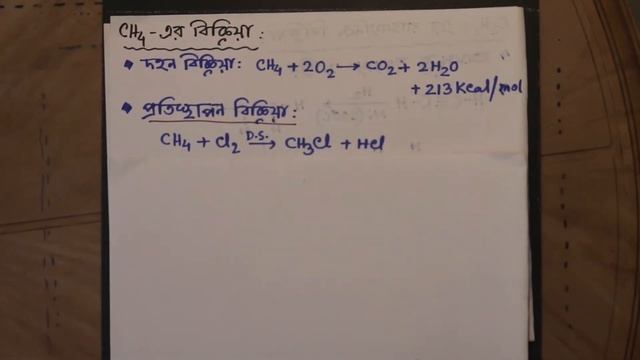 CH₄-এর বিক্রিয়া:
• দহন বিক্রিয়া: CH₄ + 2O₂ → CO₂ + 2H₂O
+ 213 Kcal/mol
• প্রতিস্থাপন বিক্রিয়া:
CH₄ + Cl₂ D.S. → CH₃Cl + HCl